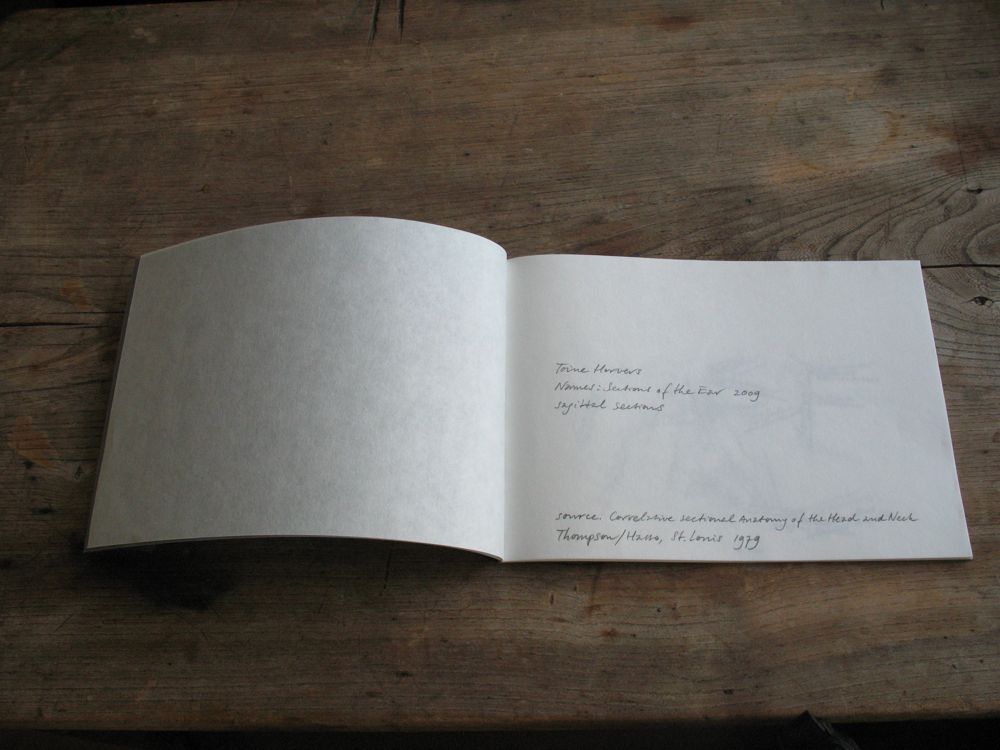 Toine Horvers
Names: Sections of the Ear 2009
sagittal sections
source: Correlative sectional Anatomy of the Head and Neck
Thompson/Hasso, St. Louis 1979